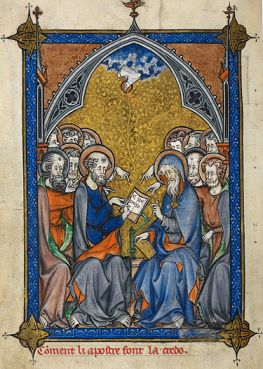 Cōment li apostre font la credo.